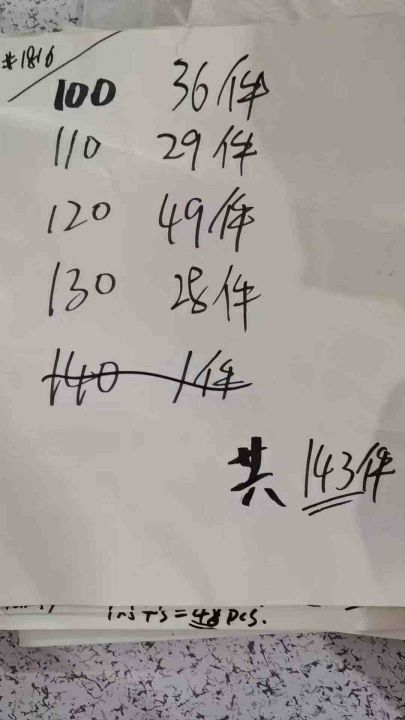 #1816
100 36件
110 29件
120 49件
130 28件
140 1件
共 143件
T's = 48 pcs.